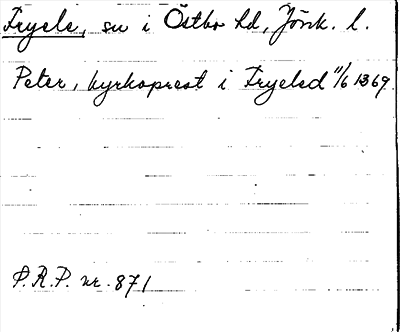 Fryele, sn i Östbo hd, Jönk. l.
Peter, kyrkoprest i Fryeled 11/6 1369.
P.R.P. nr. 871